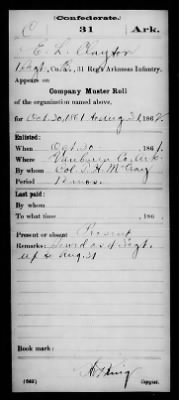 (Confederate.)
C 31 Ark.
E. L. Clayton
1 Sgt, Co. B, 31 Reg't Arkansas Infantry.
Appears on
Company Muster Roll
of the organization named above,
for Oct. 30, 1861 to Aug 31, 186
Enlisted:
When Oct. 30, 1861.
Where Vanburen Co. Ark.
By whom Col. T. H. McCray
Period 12 mos.
Last paid:
By whom
To what time , 186 .
Present or absent Present
Remarks: as Sergt.
up to Aug. 31
Book mark:
King
(642) Copyist.